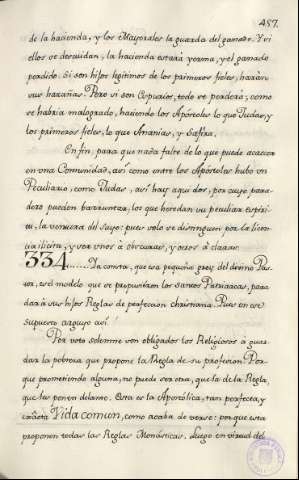 457.
de la hacienda, y los Mayorales la guarda del ganado. Y si
ellos se descuidan, la hacienda estará yerma, y el ganado
perdido. Si son hijos legitimos de los primeros fieles, harán
sus hazañas. Pero si son Espurios, todo se perderá, como
se habria malogrado, haciendo los Apóstoles lo que Judas, y
los primeros fieles, lo que Ananías, y Safira.
En fin, para que nada falte de lo que puede acaecer
en una Comunidad, así como entre los Apóstoles hubo un
Peculiario, como Judas, así hay aquí dos, por cuyo para-
dero pueden barruntar, los que heredan su peculiar espiri-
tu, la ventura del suyo: pues solo se distinguen por la licen-
cia ilicita, y ser unos à obscuras, y otros à claras.
334...... Ya consta, que esa pequeña grey del divino Pas-
tor, es el modelo que se propusieron los santos Patriarcas, para
dar à sus hijos Reglas de perfeccion christiana. Pues en este
supuesto arguyo así
Por voto solemne son obligados los Religiosos à guar-
dar la pobreza que propone la Regla de su profesion. Por-
que prometiendo alguna, no puede ser otra, que la de la Regla,
que les ponen delante. Esta es la Apostólica, tan perfecta, y
exâcta Vida comun, como acaba de verse: porque esta
proponen todas las Reglas Monásticas. Luego en virtud del